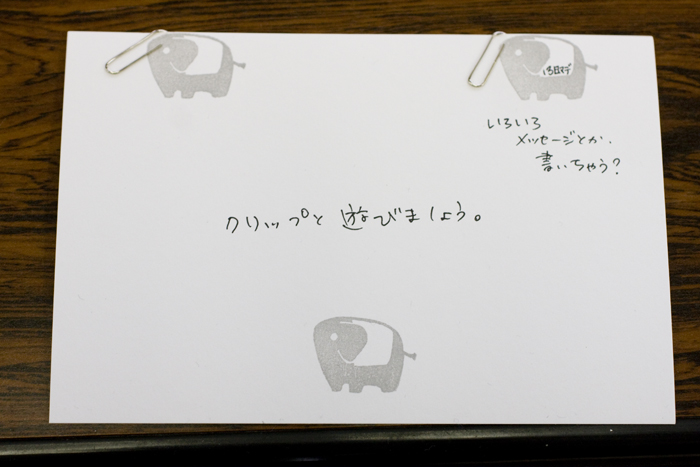 13日まで
いろいろ
メッセージとか、
書いちゃう?
クリップと遊びましょう。